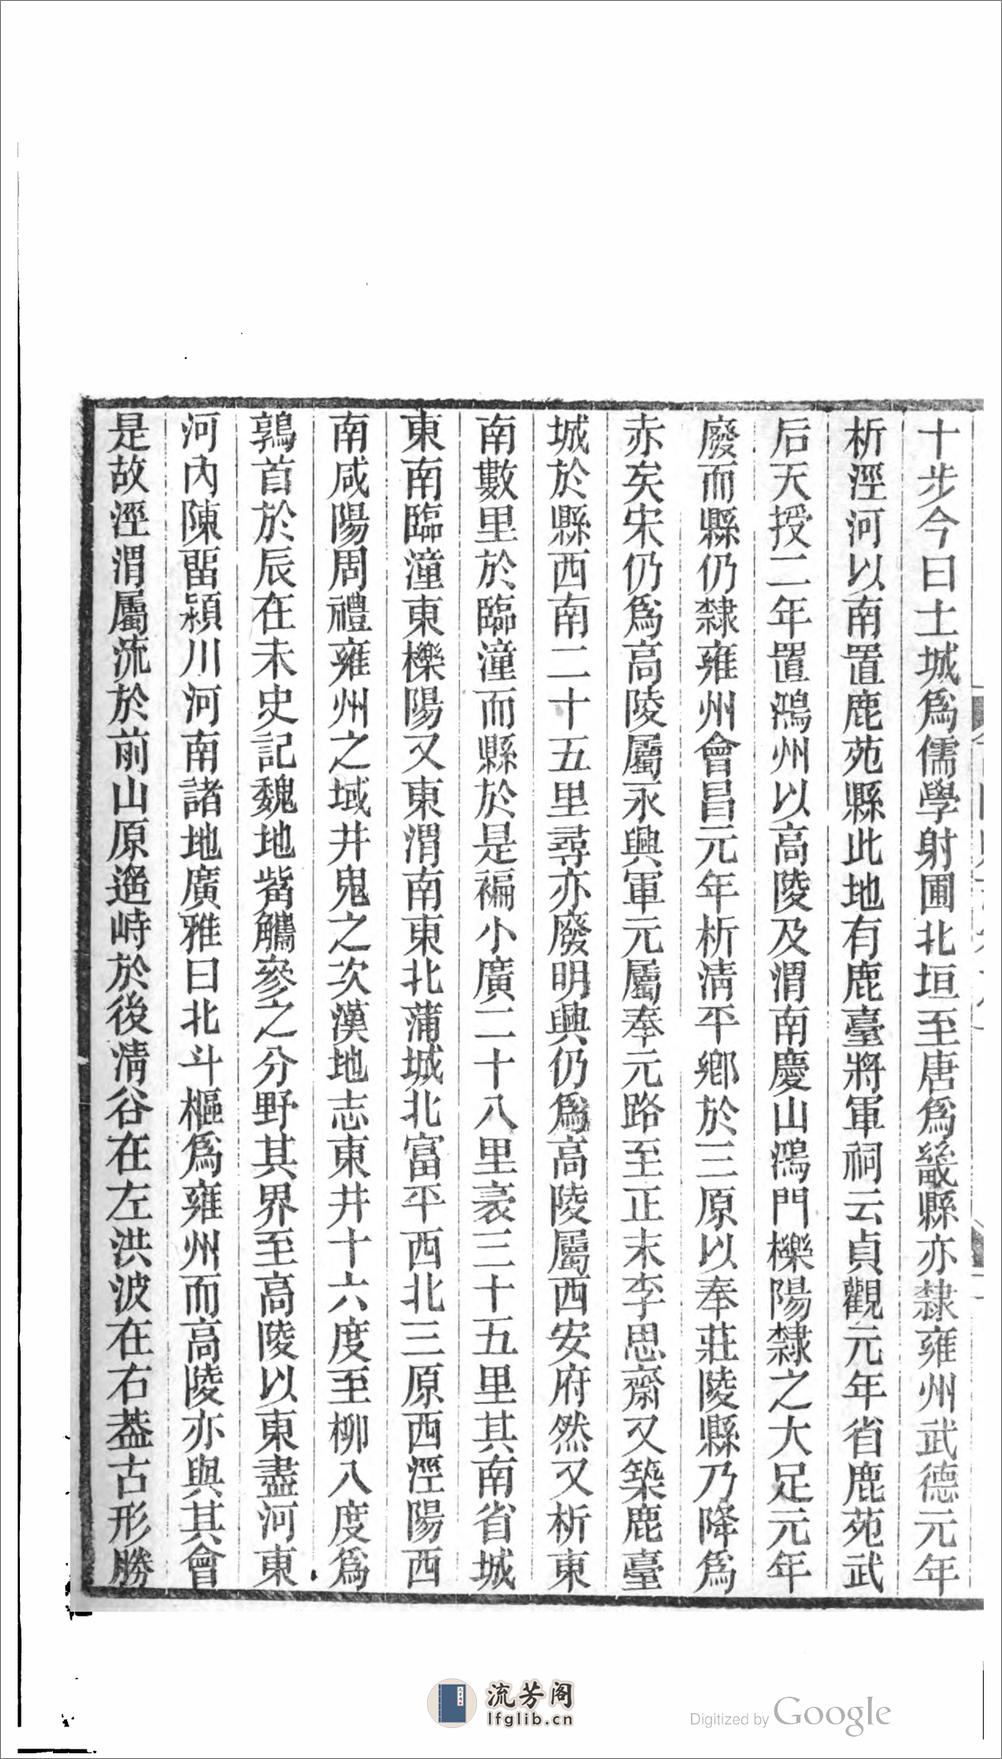 十步今曰土城爲儒學射圃北垣至唐爲畿縣亦隸雍州武德元年
析涇河以南置鹿苑縣此地有鹿臺將軍祠云貞觀元年省鹿苑武
后天授二年置鴻州以高陵及渭南慶山鴻門櫟陽隸之大足元年
廢而縣仍隸雍州會昌元年析淸平鄉於三原以奉莊陵縣乃降爲
赤矣宋仍爲高陵屬永興軍元屬奉元路至正末李思齋又築鹿臺
城於縣西南二十五里尋亦廢明興仍爲高陵屬西安府然又析東
南數里於臨潼而縣於是褊小廣二十八里袤三十五里其南省城
東南臨潼東櫟陽又東渭南東北蒲城北富平西北三原西涇陽西
南咸陽周禮雍州之域井鬼之次漢地志東井十六度至柳八度爲
鶉首於辰在未史記魏地觜觿參之分野其界至高陵以東盡河東
河內陳畱潁川河南諸地廣雅曰北斗樞爲雍州而高陵亦與其會
是故涇渭屬流於前山原遥峙於後淸谷在左洪波在右葢古形勝
流芳阁
lfglib.cn
Digitized by Google